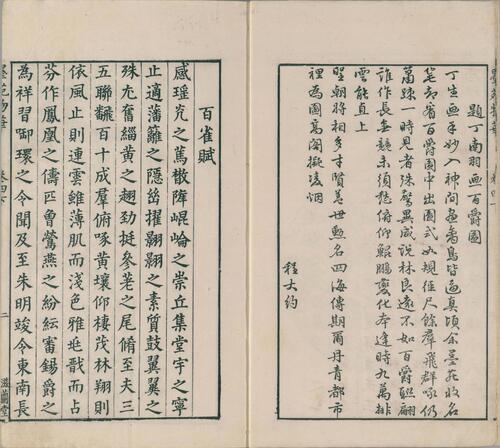 題丁南羽画百爵圖
丁生画手妙入神間画禽鳥皆逼真頃余墨苑收名
筆却看百爵圖中出圖式如規徑尺餘羣飛群啄仍
蕭踈一時見者殊驚異咸說林良遠不如百爵翾翾
誰作長無競未須愁俯仰鯤鵬變化本逢時九萬排
雲能直上
聖朝將相多才賢蓋世勲名四海傳期爾丹青都市
裡為圖高閣擬凌烟
程大約
百雀賦
感瑤光之篤散障崐崘之崇丘集堂宇之寧
止適藩籬之隱岧擢翾翾之素質鼓翼翼之
殊尤奮緇黃之趐勁挺參茖之尾脩至夫三
五聯翻百十成羣俯啄黃壤仰棲茂林翔則
依風止則連雲雖薄肌而淺色雅延戲而占
芬作鳳凰之儔匹曾鶯燕之紛紜審錫爵之
為祥習啣環之令聞及至朱明竣令東南長
二
滋蘭堂